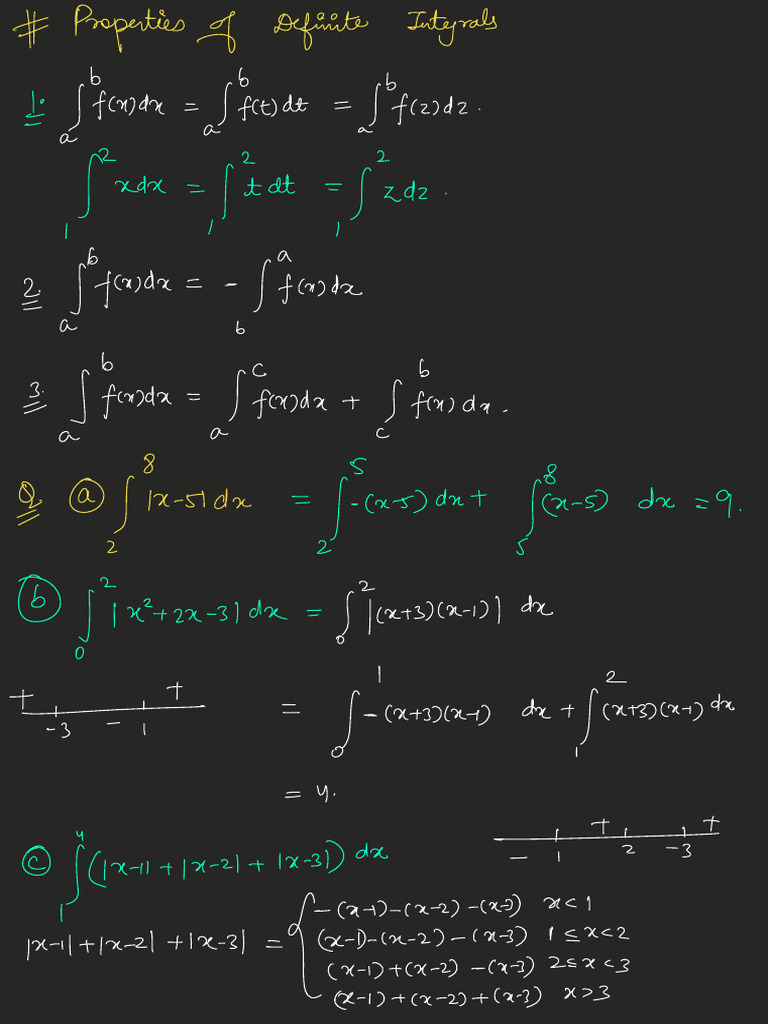 # Properties of Definite Integrals
1. ∫_a^b f(x)dx = ∫_a^b f(t)dt = ∫_a^b f(z)dz.
∫_1^2 xdx = ∫_1^2 t dt = ∫_1^2 z dz.
2. ∫_a^b f(x)dx = - ∫_b^a f(x)dx
3. ∫_a^b f(x)dx = ∫_a^c f(x)dx + ∫_c^b f(x)dx.
Q. (a) ∫_2^8 |x-5|dx = ∫_2^5 -(x-5)dx + ∫_5^8 (x-5) dx = 9.
(b) ∫_0^2 |x²+2x-3|dx = ∫_0^2 |(x+3)(x-1)| dx
+ -3 - 1 + = ∫_0^1 -(x+3)(x-1) dx + ∫_1^2 (x+3)(x-1)dx
= 4.
(c) ∫_1^4 (|x-1| + |x-2| + |x-3|) dx
- 1 + 2 -3 +
|x-1|+|x-2|+|x-3| = { -(x-1)-(x-2)-(x-3) x<1
(x-1)-(x-2)-(x-3) 1≤x<2
(x-1)+(x-2)-(x-3) 2≤x<3
(x-1)+(x-2)+(x-3) x>3